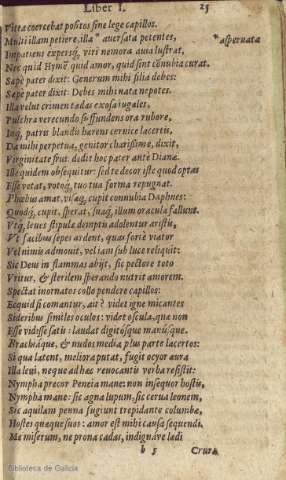 Liber I. 25
Vitta coercebat positos sine lege capillos.
Multi illam petiere, illa * auersata petentes, * aspernata
Impatiens expersq́; viri nemora auia lustrat,
Nec quid Hymẽ, quid amor, quid sint cõnubia curat.
Sæpè pater dixit: Generum mihi filia debes:
Sæpè pater dixit: Debes mihi nata nepotes.
Illa velut crimen tædas exosa iugales,
Pulchra verecundo suffundens ora rubore,
Inq́; patris blandis hærens ceruice lacertis,
Da mihi perpetua, genitor charissime, dixit,
Virginitate frui. dedit hoc pater antè Dianæ.
Ille quidem obsequitur: sed te decor iste quod optas
Esse vetat, votoq́; tuo tua forma repugnat.
Phœbus amat, visæq́; cupit connubia Daphnes:
Quodq́; cupit, sperat, suaq́; illum oracula fallunt.
Vtq́; leues stipulæ demptis adolentur aristis,
Vt facibus sepes ardent, quas fortè viator
Vel nimis admouit, vel iam sub luce reliquit:
Sic Deus in flammas abijt, sic pectore toto
Vritur, & sterilem sperando nutrit amorem.
Spectat inornatos collo pendere capillos:
Ecquid si comantur, ait? videt igne micantes
Sideribus similes oculos: videt oscula, quæ non
Esse vidisse satis: laudat digitosque manusque.
Brachiáque, & nudos media plus parte lacertos:
Si qua latent, meliora putat, fugit ocyor aura
Illa leui, neque ad hæc reuocantis verba resistit:
Nympha precor Peneia mane: non insequor hostis,
Nympha mane: sic agna lupum, sic cerua leonem,
Sic aquilam penna fugiunt trepidante columbæ,
Hostes quæque suos: amor est mihi causa sequendi.
Me miserum, ne prona cadas, indignáve lædi
b 5 Crura
Biblioteca de Galicia